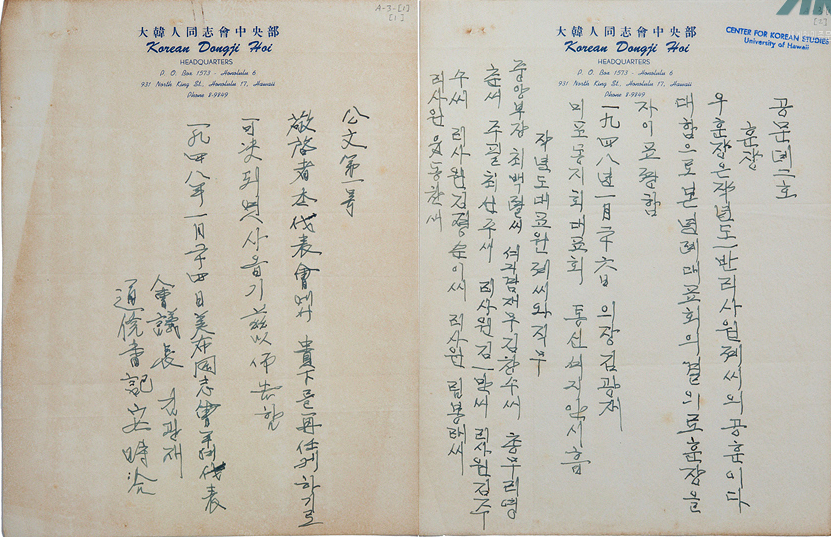 A-3-[1]
[1]
大韓人同志會中央部
Korean Dongji Hoi
HEADQUARTERS
P. O. Box 1573 - Honolulu 6
931 North King St., Honolulu 17, Hawaii
Phone 8-9849
公文第一号
敬啓者本代表會에서 貴下를 再任케하기로
可決되엿사옵기 玆以佈告함
一九四八年 一月二十四日 美布同志會 代表
會議長 김광재
通信書記 安時洽
CENTER FOR KOREAN STUDIES
University of Hawaii
大韓人同志會中央部
Korean Dongji Hoi
HEADQUARTERS
P. O. Box 1573 - Honolulu 6
931 North King St., Honolulu 17, Hawaii
Phone 8-9849
공문뎨二호
훈장
우훈장은작년도 반리사원졔씨의공훈이다
대함으로본년례대표회의결의로훈장을
자이표창함
一九四八년一月二十六日 의장김광재
미포동지회대표회 통신셔긔안시흡
작년도대표원졔씨와직무
중앙부장최백렬씨 김창수씨 총무리명
춘씨 주필최선주씨 리사원김 씨 리사원김주
수씨 리사원김졍순이씨 리사원림봉태씨
리사원 동찬씨